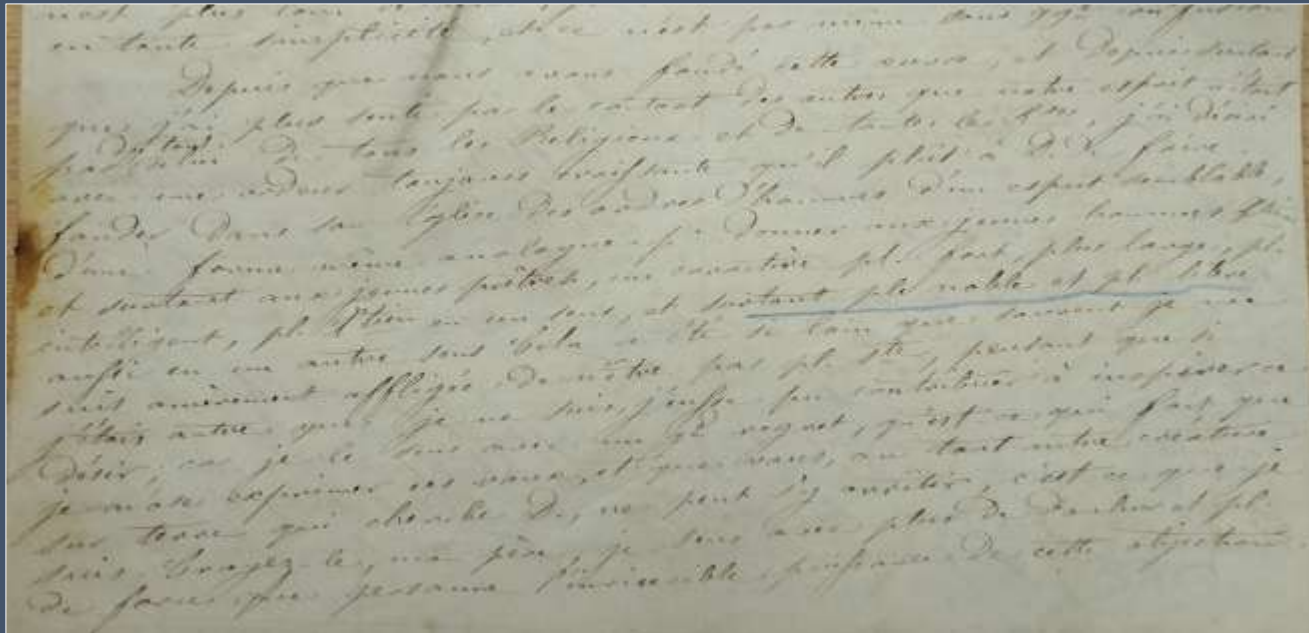 en toute simplicité, et ce n'est pas même sans gde confusion
Depuis que nous avons fondé cette œuvre, et depuis surtout
que j'ai plus senti par le contact des autres que notre esprit n'était
pas celui de tous les Religieux et de toutes les, j'ai désiré
avec une ardeur toujours croissante qu'il plût à D. de faire
fonder dans son Église des ordres d'hommes d'un esprit semblable,
d'une forme même analogue p. donner aux jeunes hommes
et surtout aux jeunes prêtres, un caractère pl. fort, plus large, pl.
intelligent, pl. chrétien en un sens, et surtout plus noble et pl. libre
aussi en un autre sens. Cela a été si loin que souvent je me
suis amèrement affligée de n'être pas pl. ste, pensant que si
j'étais autre que je ne suis, j'eusse pu contribuer à inspirer ce
désir, car je le sens avec un gd regret, qu'est-ce qui fait que
je n'ose exprimer ces vœux, et que vous, ou tout autre créature
sur terre qui cherche D., ne peut s'y arrêter, c'est ce que je
suis. Croyez-le, mon père, je sens avec plus de douleur et pl.
de force que personne l'invincible puissance de cette objection.